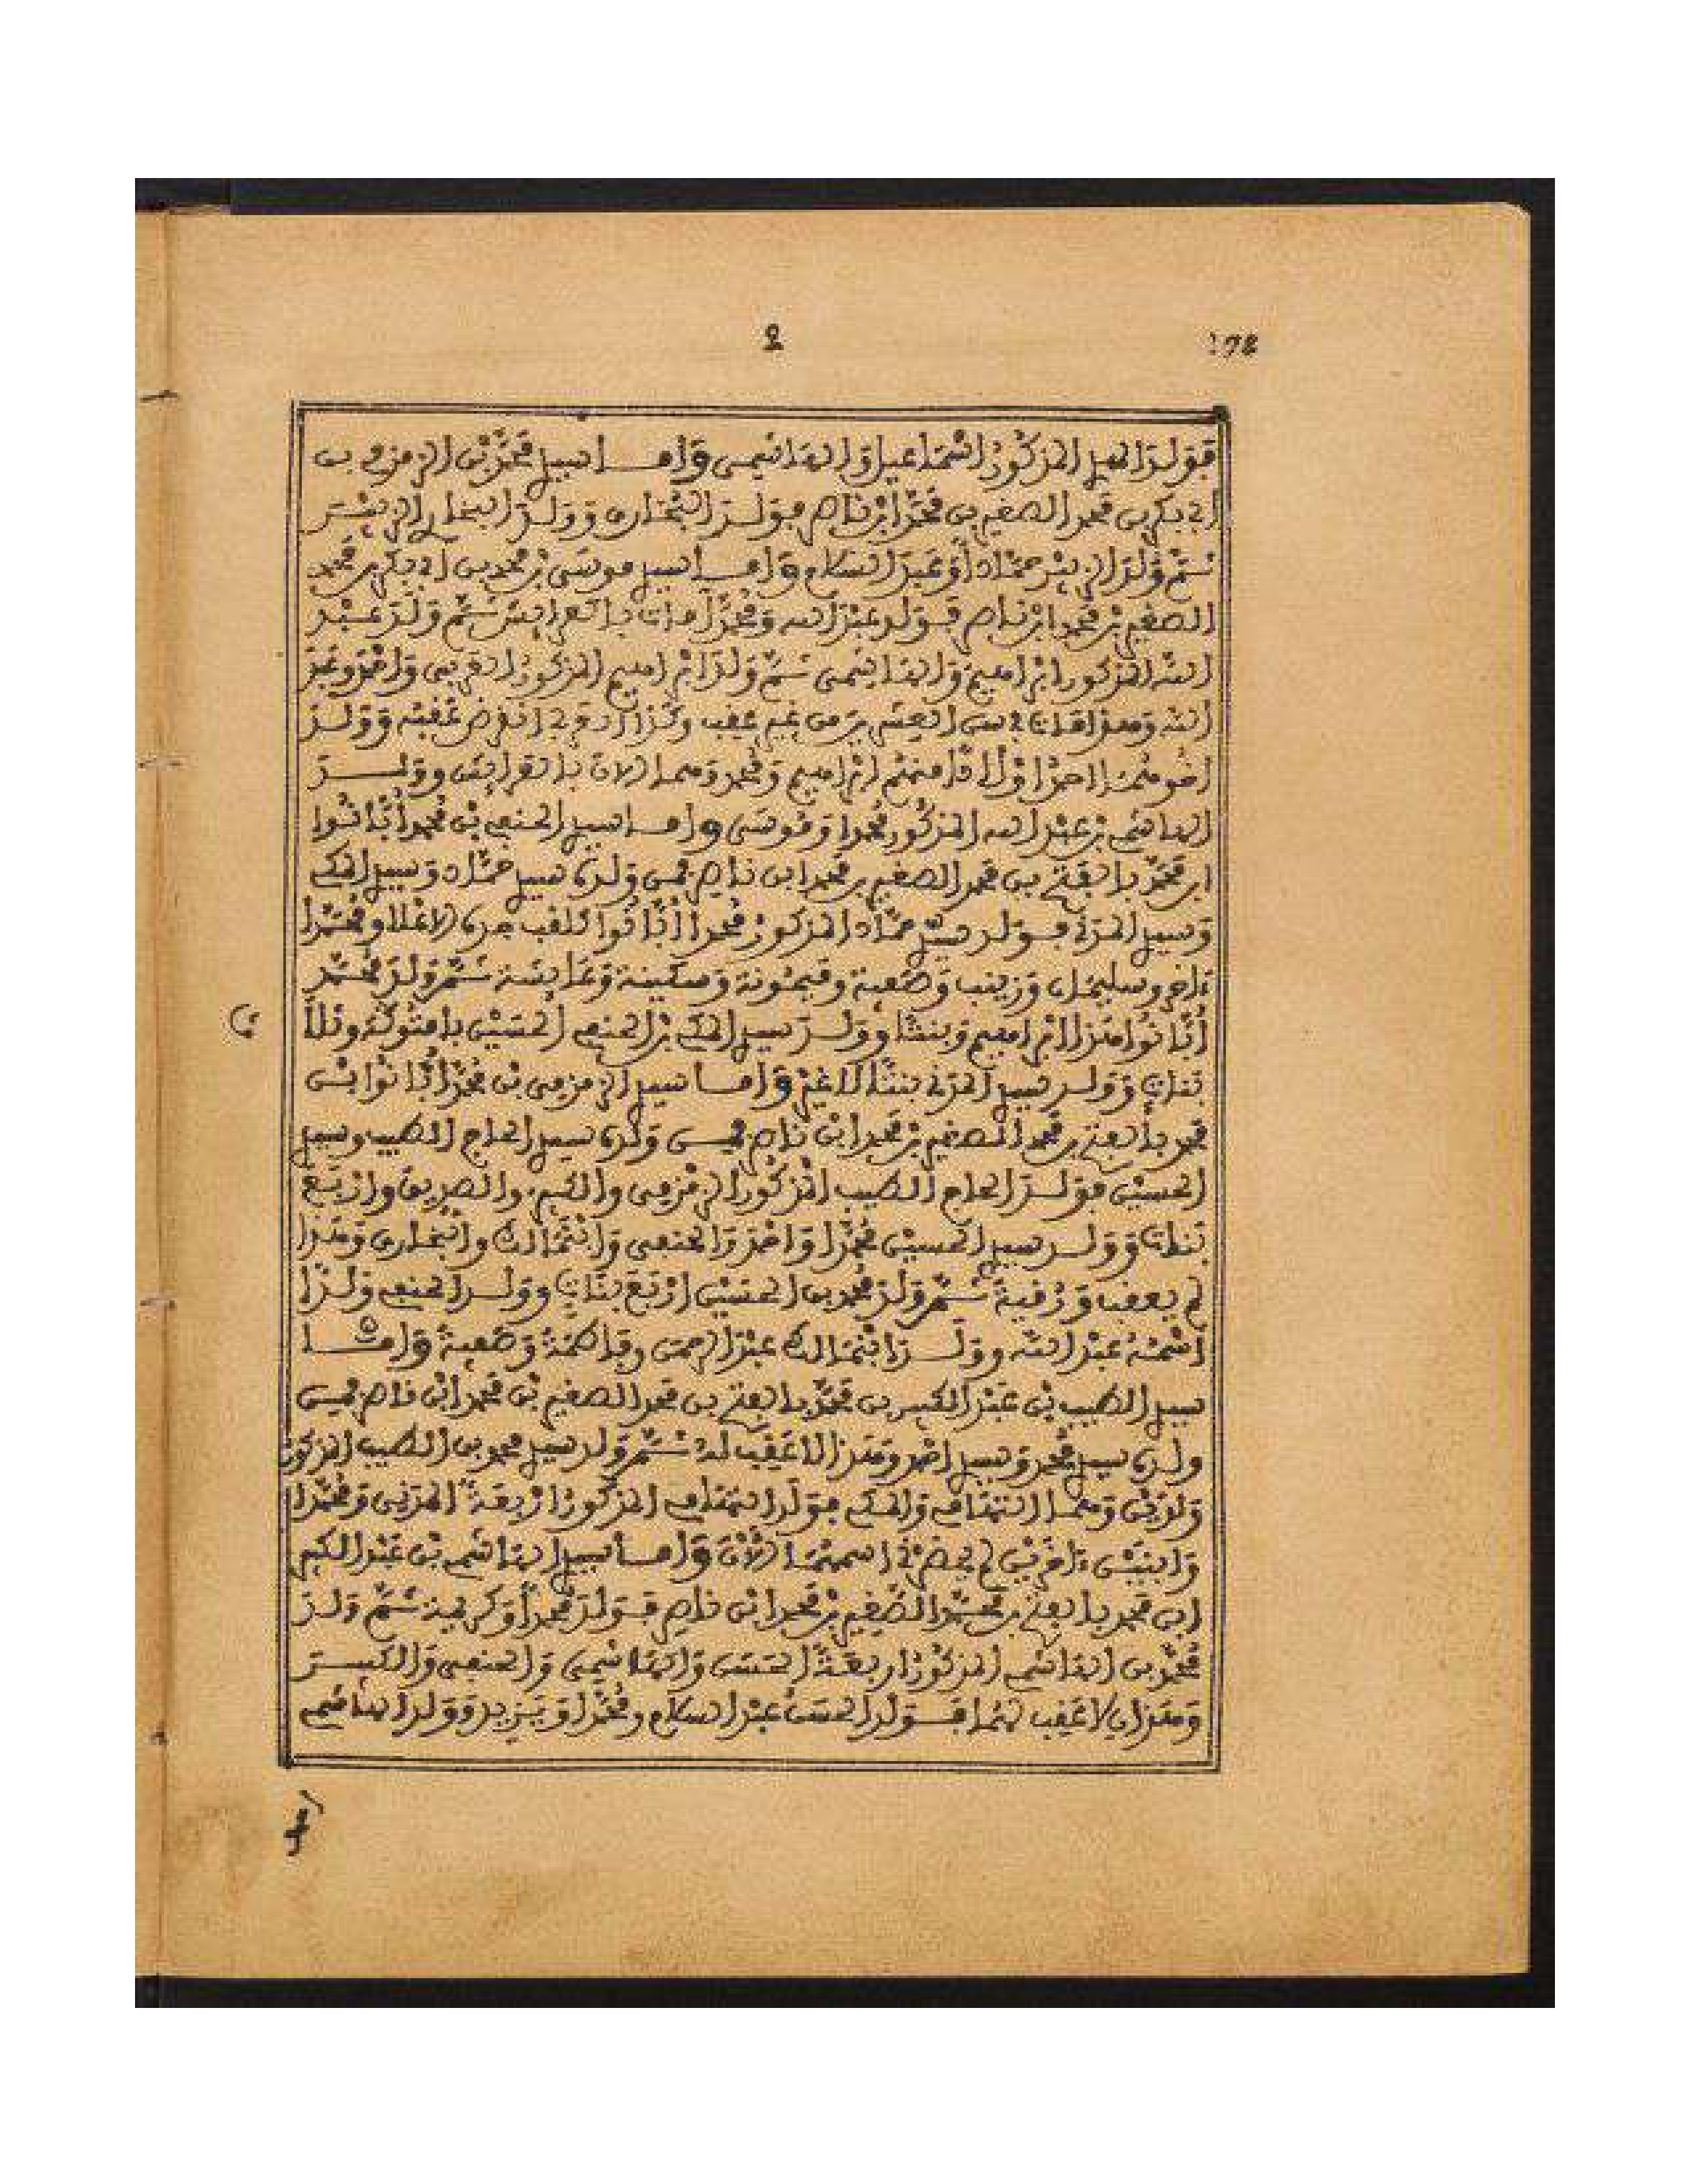 2
172
فولد السيد المذكور اسماعيل والهاشمي واما سيد محمد بن الزمزمي بن
ابي بكر بن محمد الصغير بن محمد ابن ناصر فولد البخاري وولد البخاري
ثم ولد حمادا وعبد السلام واما سيد موسى بن محمد بن ابي بكر بن محمد
الصغير بن محمد ابن ناصر فولد عبد الله ومحمدا مات بالعرايش ثم ولد عبد
الله المذكور ابراهيم والهاشمي ثم ولد ابراهيم المذكور العربي واحمد وعبد
الله وهذا مات في سن العشرين من غير عقب وكذا انقرض عقبه وولد
اولادا منهم ابراهيم ومحمد وهما الان بالعرايش وولد
الهاشمي بن عبد الله المذكور محمدا وموسى واما سيد الحنفي بن محمد اباتوا
ابن محمد بالفتح بن محمد الصغير بن محمد ابن ناصر فمن ولده سيد حماد وسيد المكي
وسيد المدني فولد سيد حماد المذكور محمدا اباتوا الملقب ومحمدا
ءاخر وسليمان وزينب وصفية وميمونة وسكينة وعايشة ثم ولد محمد
اباتوا هذا ابراهيم وبنتا وولد سيد المكي بن الحنفي الحسين بامتوكة وثلاث
بنات وولد سيد المدني بنتا لا غير واما سيد الزمزمي بن محمد اباتوا بن
محمد بالفتح بن محمد الصغير بن محمد ابن ناصر فمن ولده سيد الحاج الطيب وسيد
الحسين فولد الحاج الطيب المذكور الزمزمي والكبير والصديق واربع
بنات وولد سيد الحسين محمدا واحمد والحنفي وانتمالك والبخاري وهذا
لم يعقب ورقية ثم ولد محمد بن الحسين اربع بنات وولد الحنفي ولدا
اسمه عبد الله وولد انتمالك عبد الرحمن وفاطمة وصفية واما
سيد الطيب بن عبد الكبير بن محمد بالفتح بن محمد الصغير بن محمد ابن ناصر فمن
ولده سيد محمد وسيد احمد وهذا لا عقب له ثم ولد سيد محمد بن الطيب المذكور
ولدين وهما التهامي والمكي فولد التهامي المذكور اربعة المدني ومحمدا
وابنين ءاخرين لم يحضرني اسمهما الان واما سيد الهاشمي بن عبد الكبير
ابن محمد بالفتح بن محمد الصغير بن محمد ابن ناصر فولد محمدا وكريمة ثم ولد
محمد بن الهاشمي المذكور اربعة الحسن والهاشمي والحنفي والكبير
وهذان لا عقب لهما فولد الحسن عبد السلام ومحمدا ويزيد وولد الهاشمي